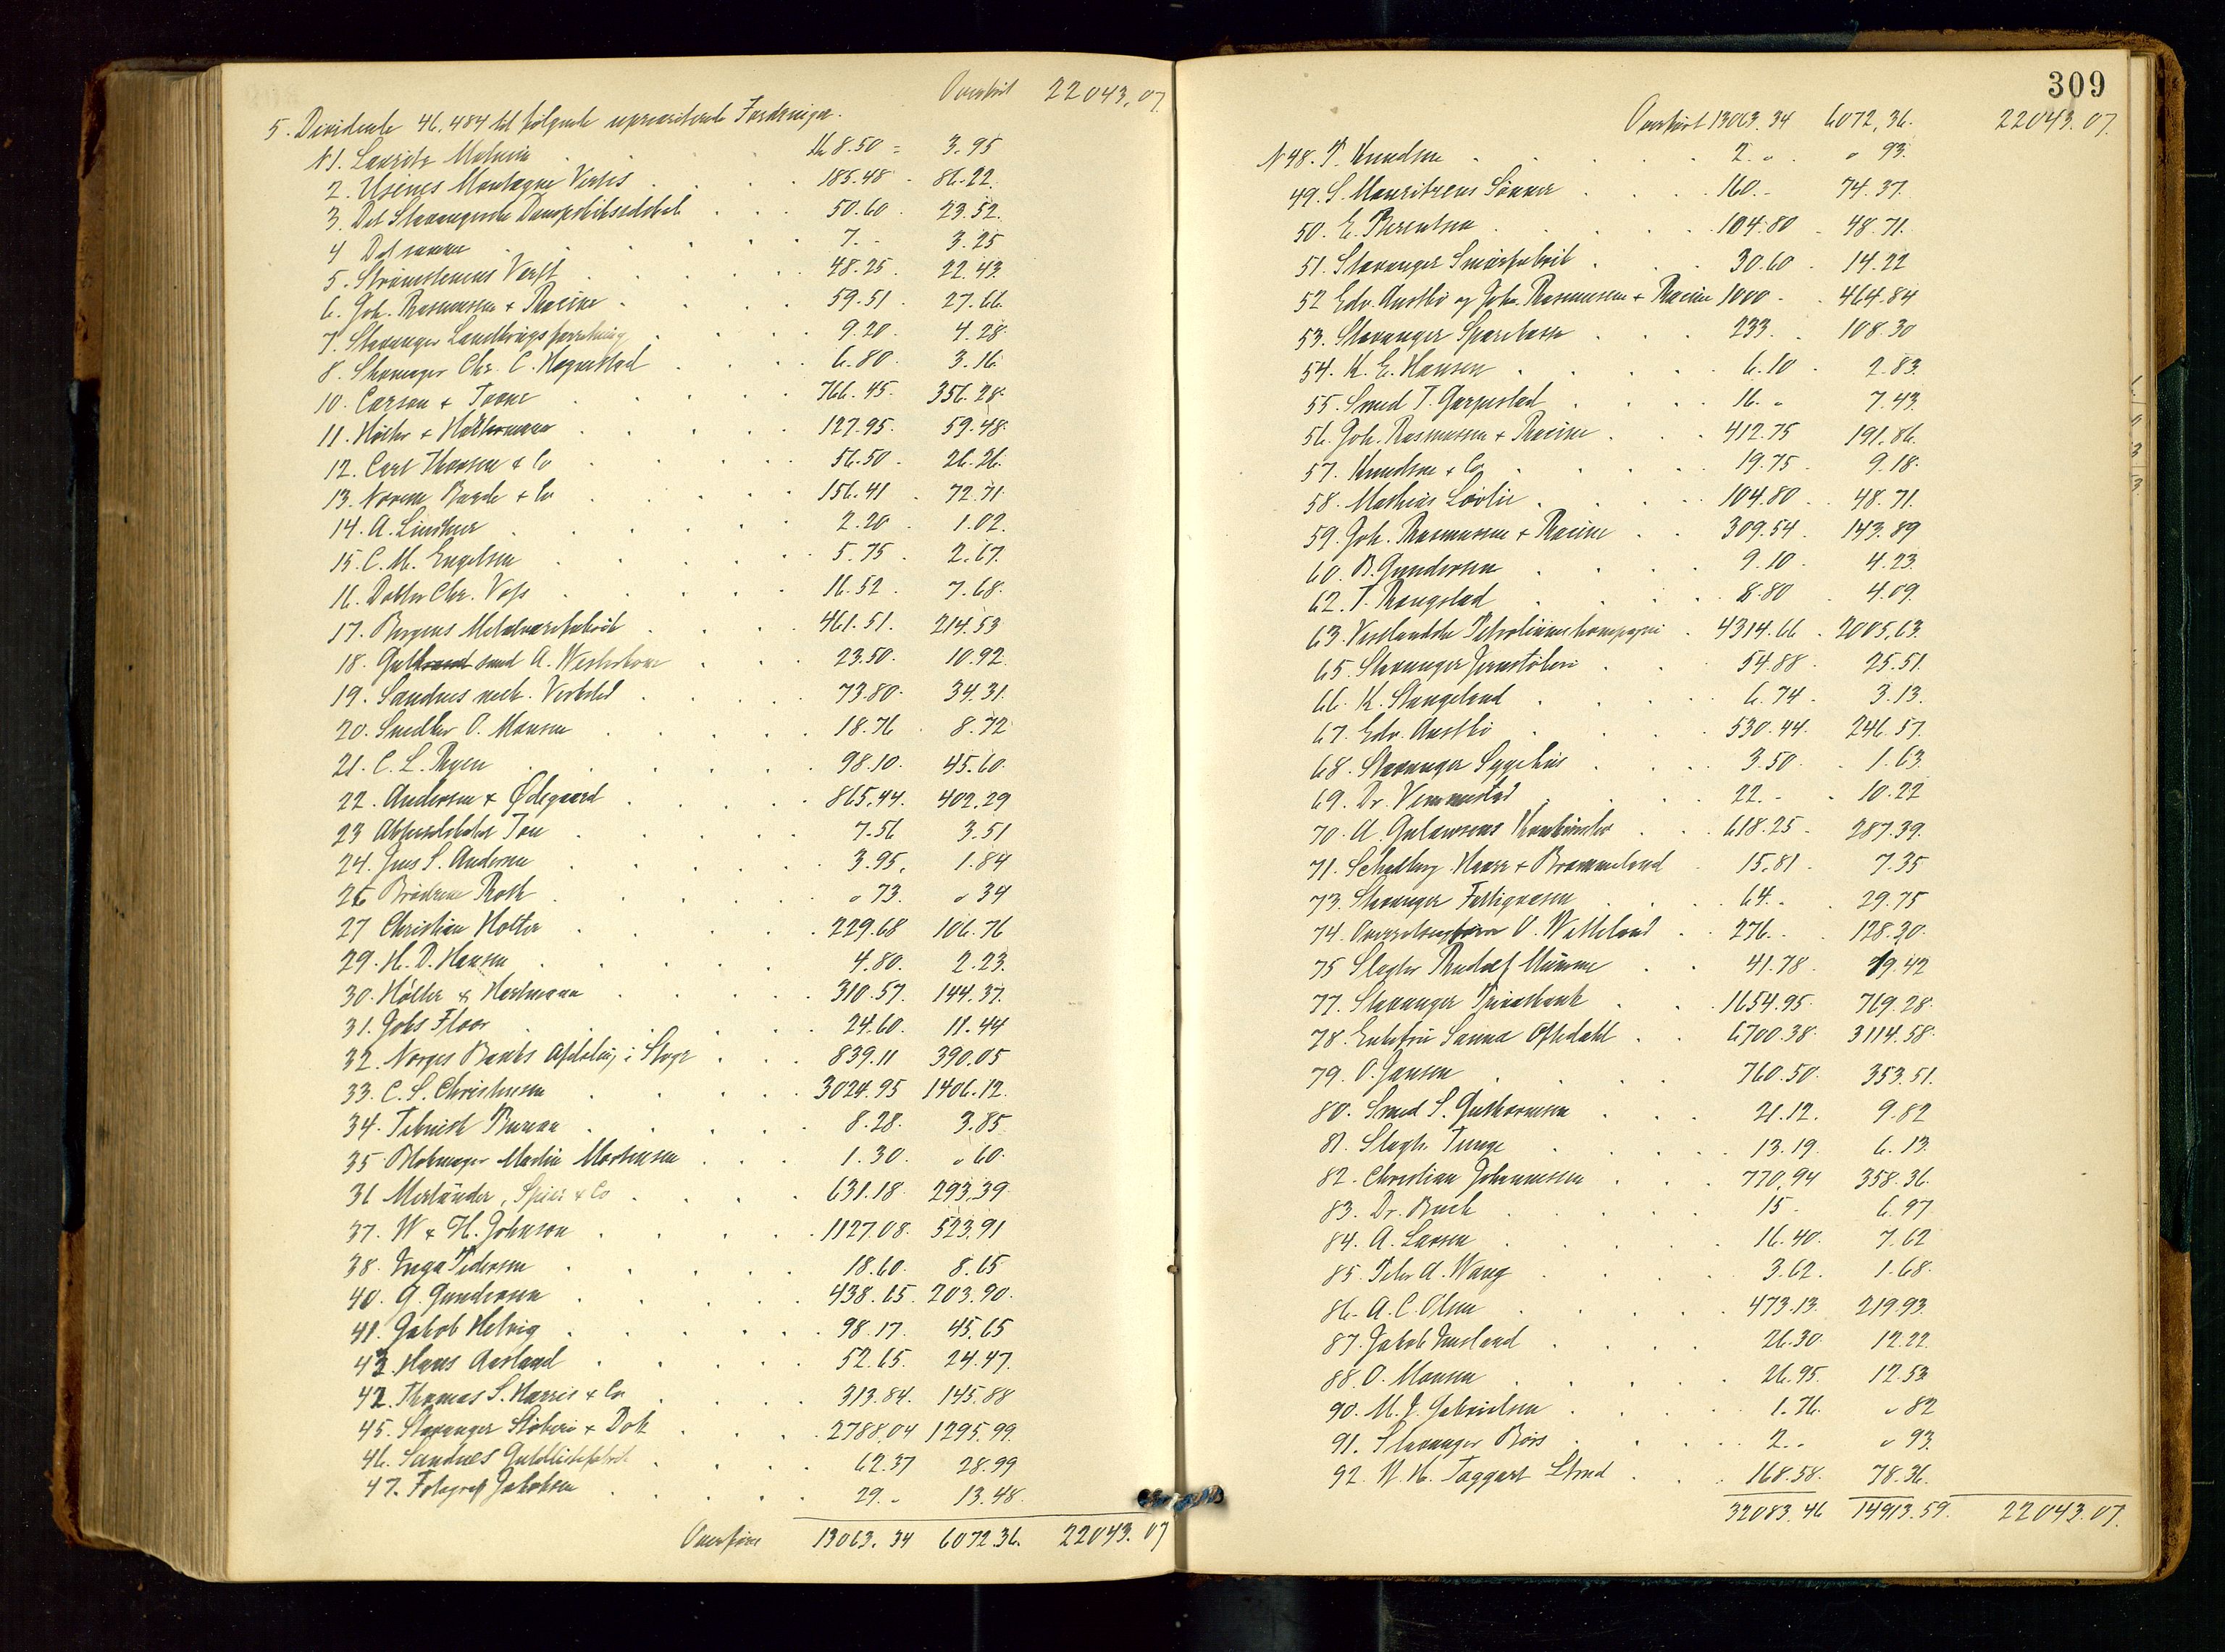 Overført 22043.07
5. Dividende 46,484 til følgende uprioriterede Fordringer.
N1. Lauritz Kr 8.50 = 3.95
2. Usines Montagne Verts 185.48 - 86.22
3. Det Stavangerske Dampskibsselskab 50.60 - 23.52
4 Det samme 7. - 3.25
5. Strømstenens Verft 48.25 22.43
6. Joh. Rasmussen & Racine 59.51 27.66
7. Stavanger Landbrugsforretning 9.20 4.28
8. Skomager Chr. C. Haguestad 6.80 3.16
10. Carson & Toone 766.45 356.28
11. Höller & 127.95 59.48
12. Carl Thorsen & Co 56.50 26.26
13. Bagde & Co 156.41 72.71
14. A. Lindtner 2.20 1.02
15. C. M. Engelsen 5.75 2.67
16. Doktor Chr. Voss 16.52 7.68
17. Bergens Metalvarefabrik 461.51 214.53
18. Guldsmed A. Westerbone 23.50 10.92
19. Sandnes mek. Verksted 73.80 34.31
20. Snedker O. Monsen 18.76 8.72
21. C. L. Ryen 98.10 45.60
22. Andersen & Ødegaard 865.44 402.29
23 Aktieselskabet Tou 7.56 3.51
24. Jens S. Andersen 3.95 1.84
26 Brødrene Roth " 73 " 34
27 Christian Holter 229.68 106.76
29. H. D. Hansen 4.80 2.23
30. Höller & Hartmann 310.57 144.37
31. Johs Floor 24.60 11.44
32. Norges Banks Afdeling i Stvgr 839.11 390.05
33. C. S. Christensen 3024.95 1406.12
34. Teknisk Bureau 8.28 3.85
35 Blokmager Martin Mortensen 1.30 " 60
36 Merländer, Spier & Co 631.18 293.39
37. W & H. Johnson 1127.08 523.91
38. Inga Pedersen 18.60 8.65
40. G. Gundersen 438.65 203.90
41. Jakob Helvig 98.17 45.65
43. Hans Aasland 52.65 24.47
42. Thomas S. Harris & Co 313.84 145.88
45. Stavanger Støberi & Dok 2788.04 1295.99
46. Sandnes 62.37 28.99
47. Fotograf Jakobsen 29. " 13.48
Overføres 13063.34 6072.36 22043.07
309
Overført 13063.34 6072.36 22043.07
N 48. T. Knudsen 2. " " 93
49. S. Mauritzens Sønner 160. - 74.37
50. E. Berentsen 104.80 - 48.71
51. Stavanger Smørfabrik 30.60 - 14.22
52 Edv. Austbø og Joh. Rasmussen & Racine 1000 - 464.84
53. Stavanger Sparekasse 233 - 108.30
54. K. E. Hansen 6.10 - 2.83
55. Smed T. Garpestad 16. " 7.43
56. Joh. Rasmussen & Racine 412.75 191.86
57. Knudsen & Co 19.75 9.18
58. Mathias Løvlie 104.80 48.71
59. Joh. Rasmussen & Racine 309.54 143.89
60. B. Gundersen 9.10 4.23
62. T. Rangstad 8.80 4.09
63. Vestlandske Petroleumskompagni 4314.66 2005.63
65. Stavanger Jernstøberi 54.88 25.51
66. K. Stangeland 6.74 3.13
67. Edv. Austbø 530.44 246.57
68. Stavanger Sygehus 3.50 1.63
69. Dr. Vennestad 22. - 10.22
70. A. 618.25 287.39
71. Schelberg Haarr & Brommeland 15.81 7.35
73. Stavanger Fattigvæsen 64. " 29.75
74. O. Wetteland 276. - 128.30
75 Slagter Rudolf 41.78 19.42
77. Stavanger Privatbank 1654.95 769.28
78. Enkefru Sanna Oftedahl 6700.38 3114.58
79. O. Jansen 760.50 353.51
80. Smed S. Guthormsen 21.12 9.82
81. Slagter Tunge 13.19 6.13
82. Christian Johannessen 770.94 358.36
83. Dr. Buch 15 - 6.97
84. A. Larsen 16.40 7.62
85. Peter A. Wang 3.62 1.68
86. A. C. Olsen 473.13 219.93
87. Jakob Husland 26.30 12.22
88. O. Monsen 26.95 12.53
90. M. J. Gabrielsen 1.76 " 82
91. Stavanger Børs 2. - " 93
92. N. H. Taggart 168.58 78.36
32083.46 14913.59 22043.07